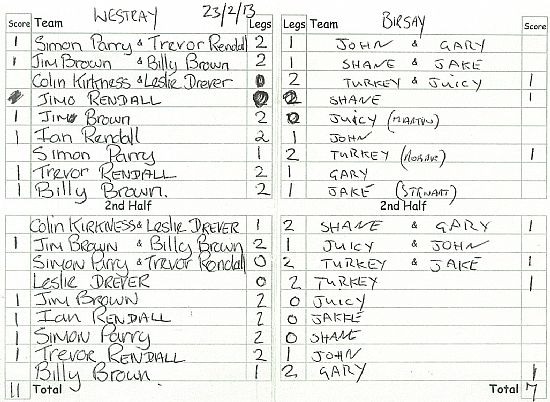 WESTRAY 23/2/13 BIRSAY
Score Team Legs Legs Team Score
1 Simon Parry & Trevor Rendall 2 1 JOHN & GARY
1 Jim Brown & Billy Brown 2 1 SHANE & JAKE
Colin Kirkness & Leslie Drever 0 2 TURKEY & JUICY 1
JIMO RENDALL 0 2 SHANE 1
1 Jim Brown 2 0 JUICY (MARTIN)
1 Ian Rendall 2 1 JOHN
Simon Parry 1 2 TURKEY 1
1 Trevor RENDALL 2 1 GARY
1 Billy Brown. 2 1 JAKE (STEWART)
2nd Half 2nd Half
Colin KIRKNESS & Leslie DREVER 1 2 SHANE & GARY 1
1 Jim BROWN & Billy Brown 2 1 JUICY & JOHN
Simon Parry & Trevor Rendall 0 2 TURKEY & JAKE 1
Leslie DREVER 0 2 TURKEY 1
1 Jim BROWN 2 0 JUICY
1 Ian RENDALL 2 0 JAKE
1 Simon Parry 2 0 SHANE
1 Trevor RENDALL 2 1 JOHN
Billy Brown 1 2 GARY 1
11 Total Total 7